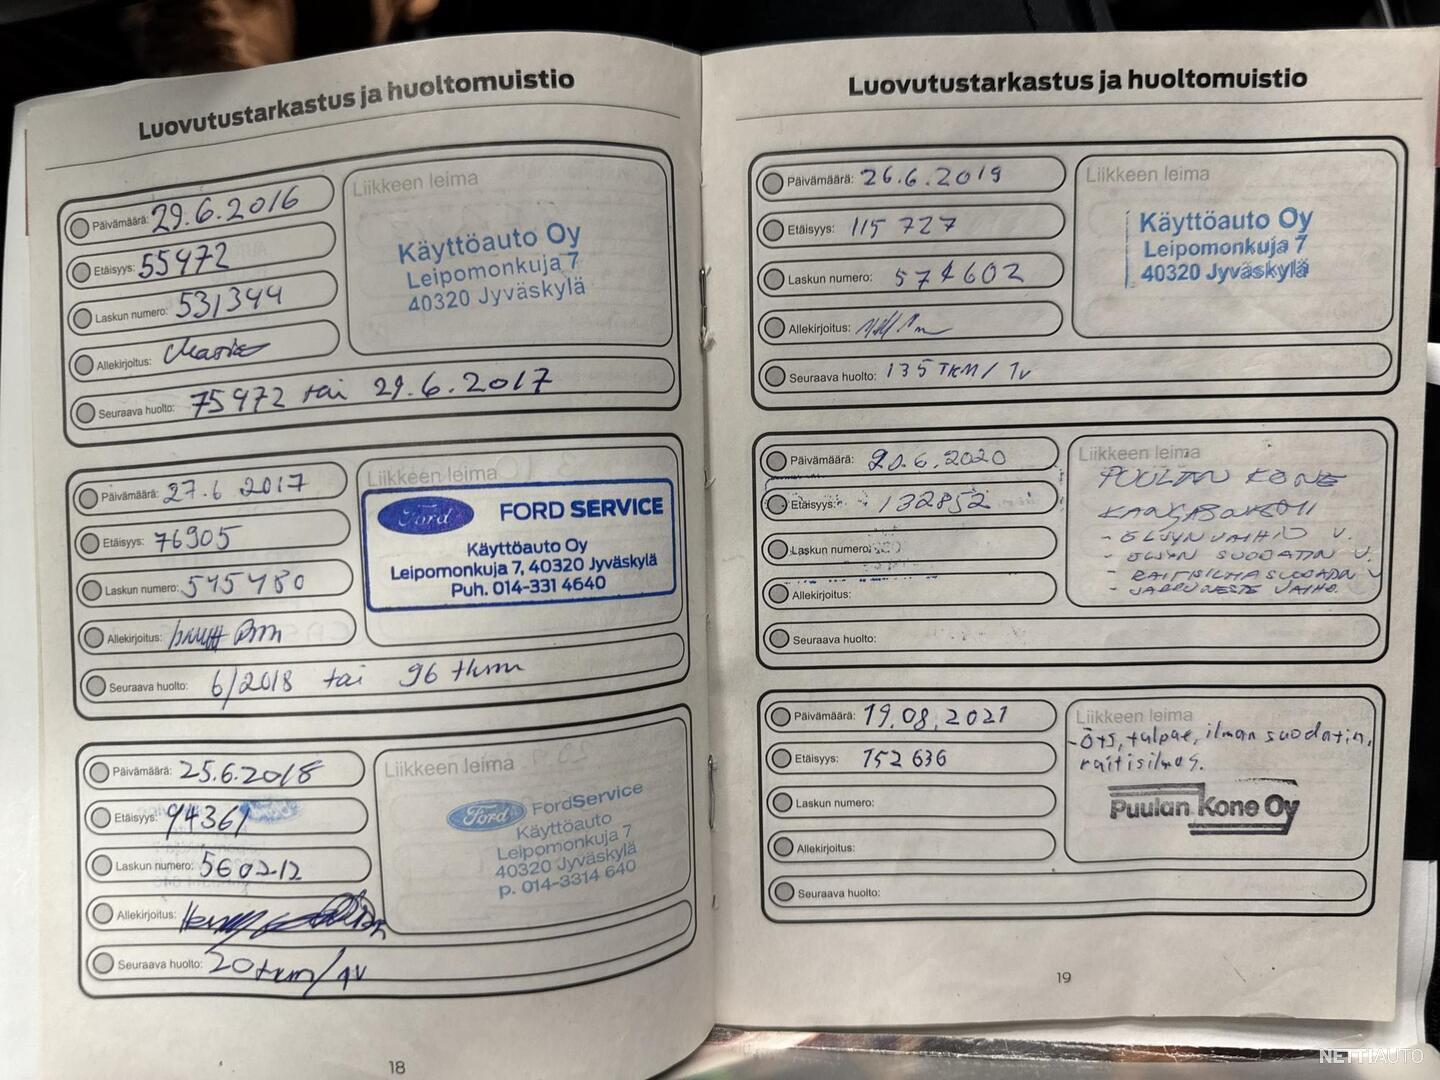 Luovutustarkastus ja huoltomuistio
Päivämäärä: 29.6.2016
Etäisyys: 55972
Laskun numero: 531344
Allekirjoitus:
Seuraava huolto: 75972 tai 29.6.2017
Liikkeen leima
Käyttöauto Oy
Leipomonkuja 7
40320 Jyväskylä
Päivämäärä: 27.6 2017
Etäisyys: 76905
Laskun numero: 545480
Allekirjoitus:
Seuraava huolto: 6/2018 tai 96 tkm
Liikkeen leima
Ford FORD SERVICE
Käyttöauto Oy
Leipomonkuja 7, 40320 Jyväskylä
Puh. 014-331 4640
Päivämäärä: 25.6.2018
Etäisyys: 94361
Laskun numero: 560212
Allekirjoitus:
Seuraava huolto: 20 tkm/1v
Liikkeen leima
Ford FordService
Käyttöauto
Leipomonkuja 7
40320 Jyväskylä
p. 014-3314 640
18
Luovutustarkastus ja huoltomuistio
Päivämäärä: 26.6.2019
Etäisyys: 115 727
Laskun numero: 574602
Allekirjoitus:
Seuraava huolto: 135 TKM/ 1v
Liikkeen leima
Käyttöauto Oy
Leipomonkuja 7
40320 Jyväskylä
Päivämäärä: 20.6.2020
Etäisyys: 132852
Laskun numero:
Allekirjoitus:
Seuraava huolto:
Liikkeen leima
PUULAN KONE
KANGASNIEMI
- ÖLJYN VAIHTO V.
- ÖLJYN SUODATIN V.
- RAITISILMASUODATIN V
- JARRUNESTE VAIHD.
Päivämäärä: 19.08.2021
Etäisyys: 152 636
Laskun numero:
Allekirjoitus:
Seuraava huolto:
Liikkeen leima
- Öts, tulpae, ilman suodatin,
raitisilmas.
Puulan Kone Oy
19
NETTIAUTO